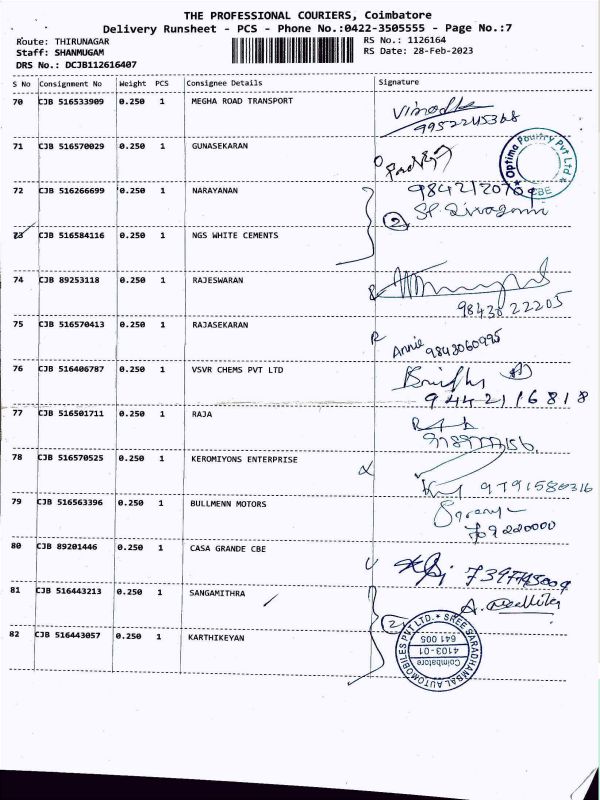 THE PROFESSIONAL COURIERS, Coimbatore
Delivery Runsheet - PCS - Phone No.:0422-3505555 - Page No.:7
Route: THIRUNAGAR
RS No.: 1126164
Staff: SHANMUGAM
RS Date: 28-Feb-2023
DRS No.: DCJB112616407
S No Consignment No Weight PCS Consignee Details Signature
70 CJB 516533909 0.250 1 MEGHA ROAD TRANSPORT
9952245368
71 CJB 516570029 0.250 1 GUNASEKARAN
Optima Poultry Pvt Ltd
CBE
72 CJB 516266699 0.250 1 NARAYANAN
2
73 CJB 516584116 0.250 1 NGS WHITE CEMENTS
74 CJB 89253118 0.250 1 RAJESWARAN
98430 22205
75 CJB 516570413 0.250 1 RAJASEKARAN
Annie 9843060995
76 CJB 516406787 0.250 1 VSVR CHEMS PVT LTD
9442116818
77 CJB 516501711 0.250 1 RAJA
78 CJB 516570525 0.250 1 KEROMIYONS ENTERPRISE
9791580316
79 CJB 516563396 0.250 1 BULLMENN MOTORS
80 CJB 89201446 0.250 1 CASA GRANDE CBE
81 CJB 516443213 0.250 1 SANGAMITHRA
2
82 CJB 516443057 0.250 1 KARTHIKEYAN
SREE SARADHAMBAL AUTOMOBILES PVT LTD.
641 005
4103-01
Coimbatore